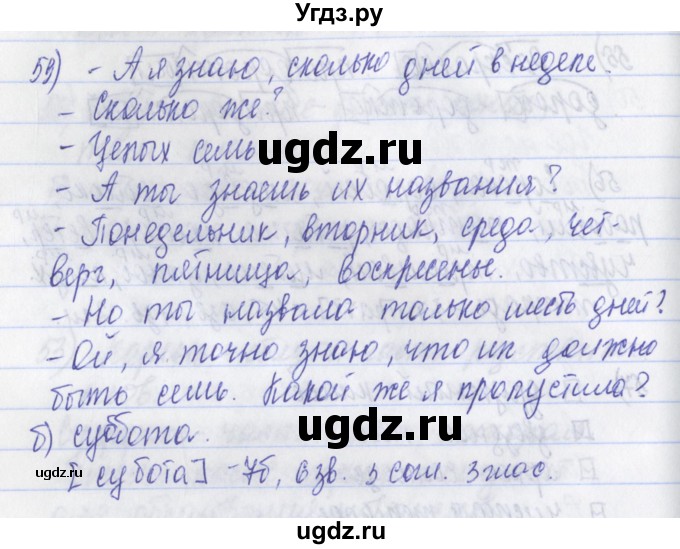 Угдз.ру
59) - А я знаю, сколько дней в неделе.
- Сколько же?
- Целых семь
ugdz.ru
- А ты знаешь их названия?
- Понедельник, вторник, среда, чет-
верг, пятница, воскресенье.
- Но ты назвала только шесть дней?
- Ой, я точно знаю, что их должно
быть семь. Какой же я пропустила?
б) суббота.
ugdz.ru
[субота] - 7б, 6 зв. 3 сог. 3 глас.
ugdz.ru
ugdz.ru